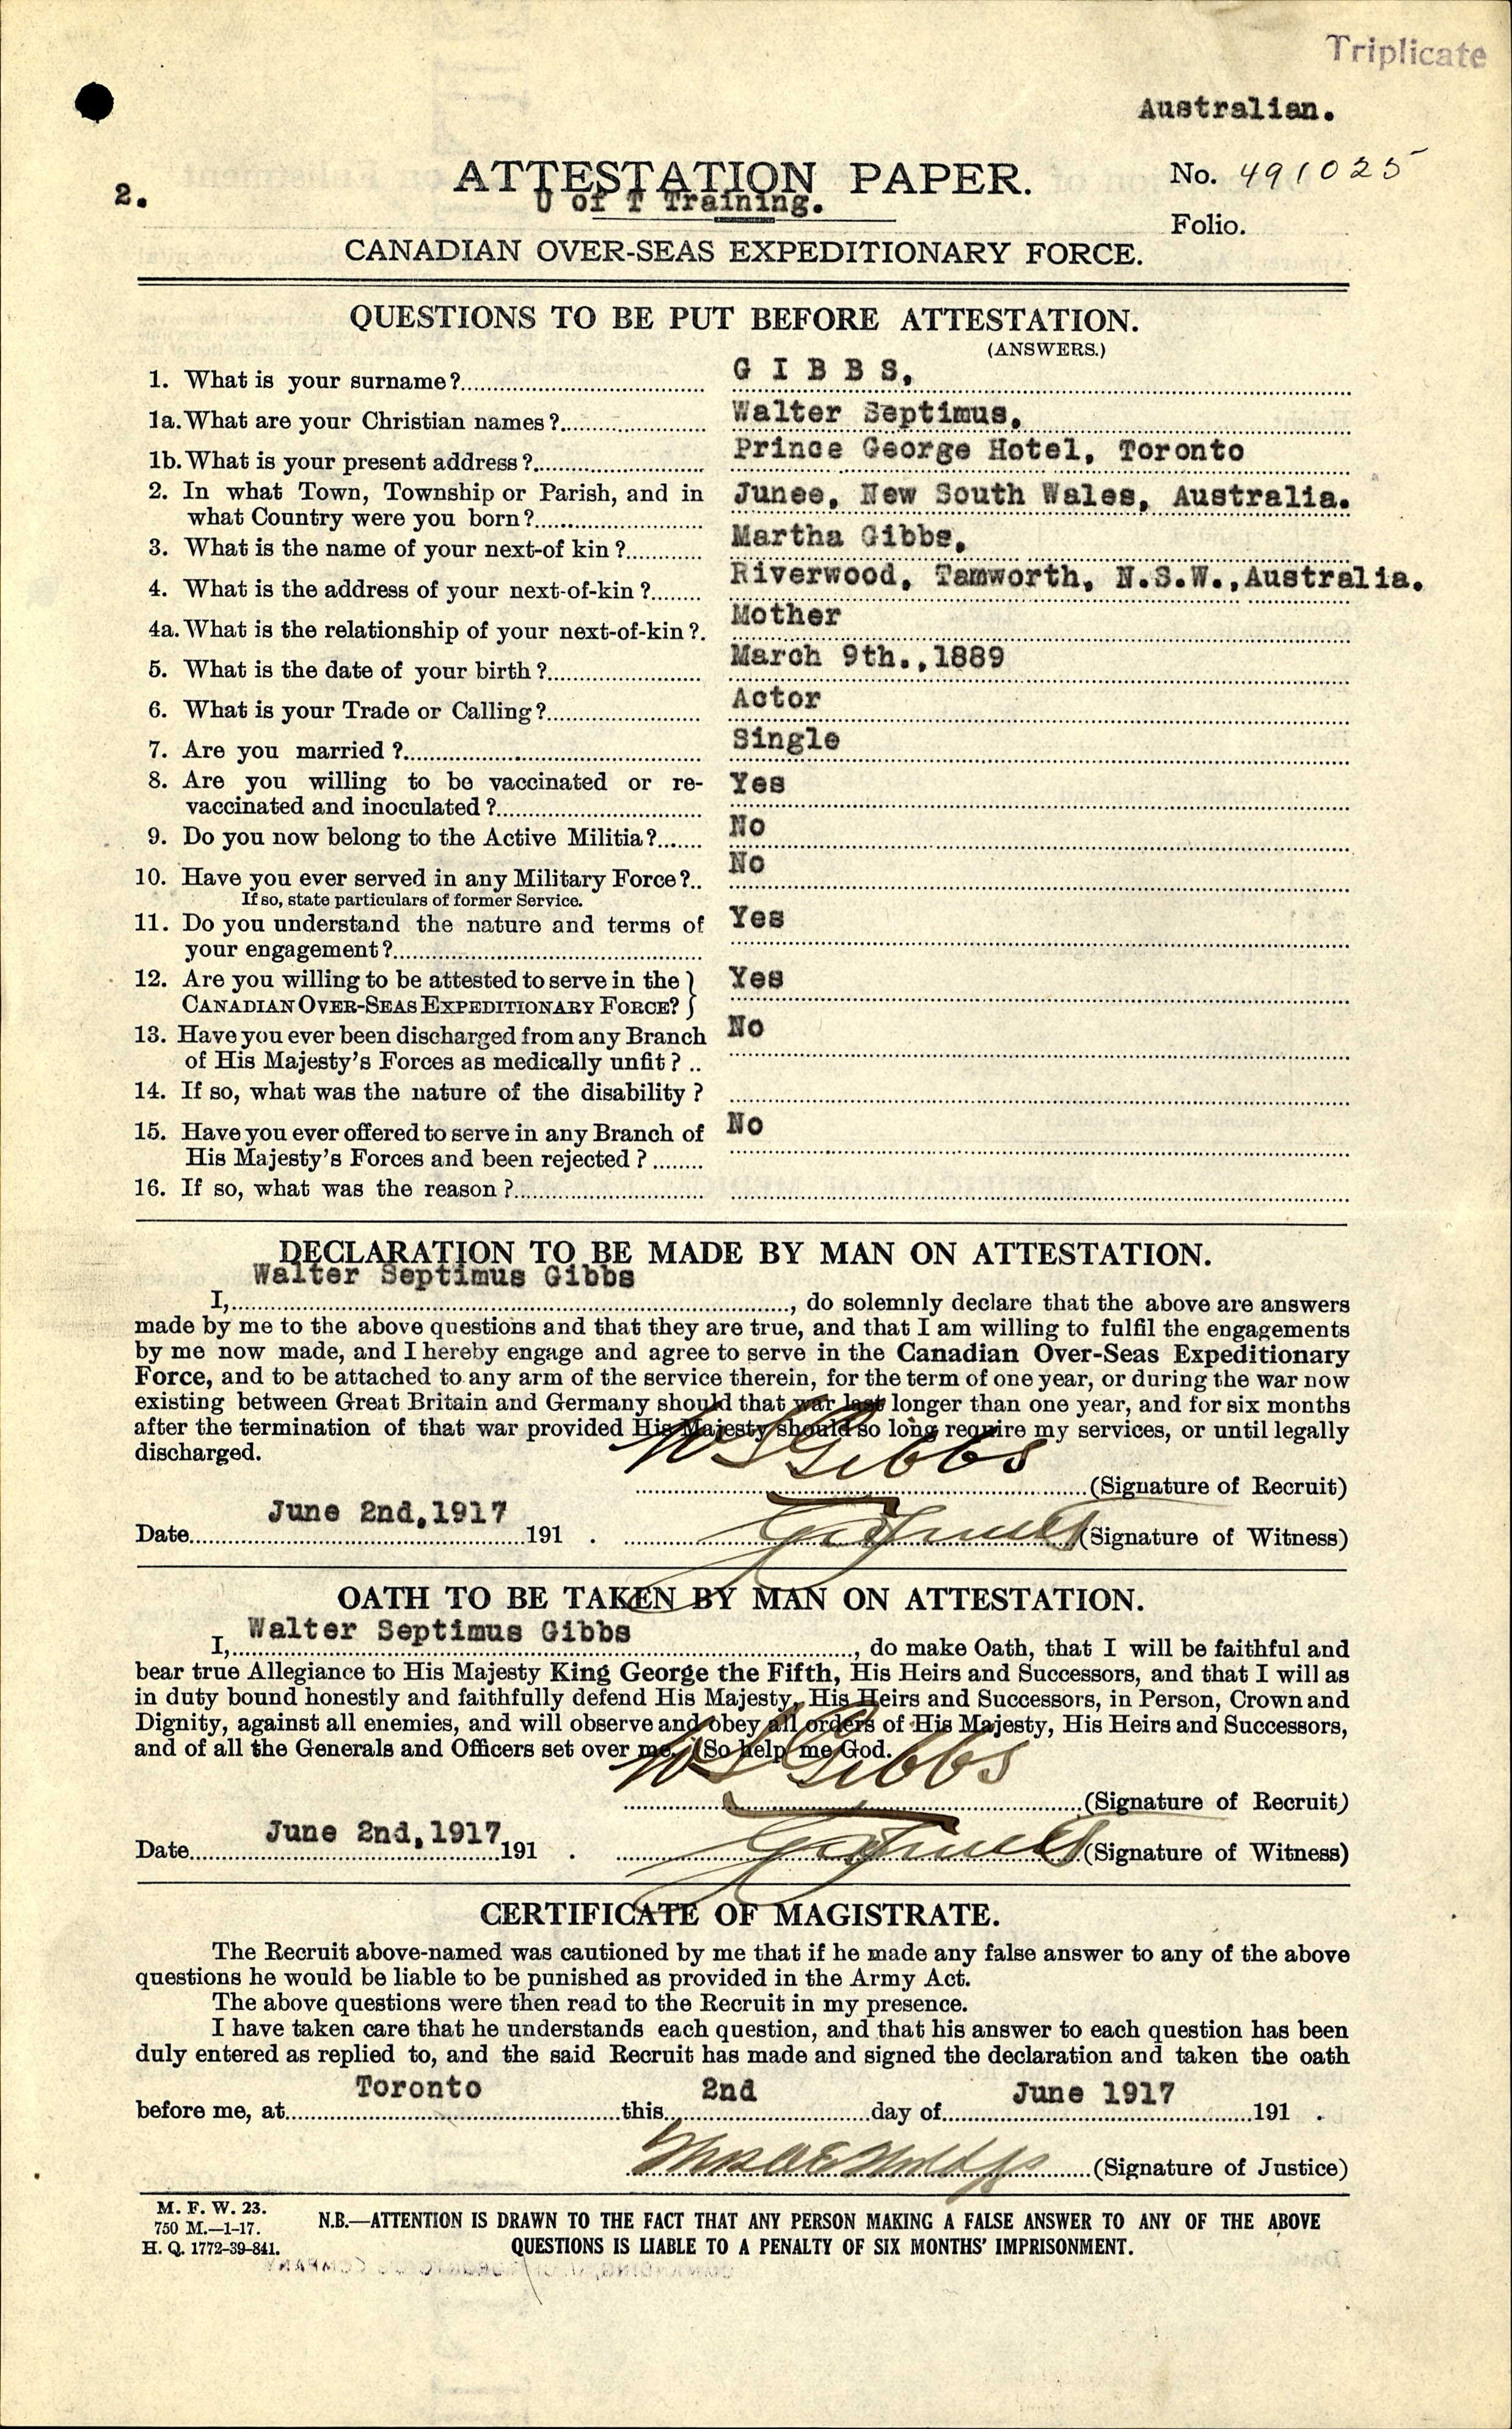 Triplicate
Australian.
2.
ATTESTATION PAPER.
No. 491025
U of T Training.
Folio.
CANADIAN OVER-SEAS EXPEDITIONARY FORCE.
QUESTIONS TO BE PUT BEFORE ATTESTATION.
(ANSWERS.)
1. What is your surname? G I B B S,
1a. What are your Christian names? Walter Septimus,
1b. What is your present address? Prince George Hotel, Toronto
2. In what Town, Township or Parish, and in
what Country were you born? Junee, New South Wales, Australia.
3. What is the name of your next-of kin? Martha Gibbs,
4. What is the address of your next-of-kin? Riverwood, Tamworth, N.S.W., Australia.
4a. What is the relationship of your next-of-kin? Mother
5. What is the date of your birth? March 9th., 1889
6. What is your Trade or Calling? Actor
7. Are you married? Single
8. Are you willing to be vaccinated or re-
vaccinated and inoculated? Yes
9. Do you now belong to the Active Militia? No
10. Have you ever served in any Military Force? No
If so, state particulars of former Service.
11. Do you understand the nature and terms of
your engagement? Yes
12. Are you willing to be attested to serve in the
CANADIAN OVER-SEAS EXPEDITIONARY FORCE? Yes
13. Have you ever been discharged from any Branch
of His Majesty's Forces as medically unfit? No
14. If so, what was the nature of the disability?
15. Have you ever offered to serve in any Branch of
His Majesty's Forces and been rejected? No
16. If so, what was the reason?
DECLARATION TO BE MADE BY MAN ON ATTESTATION.
Walter Septimus Gibbs
I, , do solemnly declare that the above are answers
made by me to the above questions and that they are true, and that I am willing to fulfil the engagements
by me now made, and I hereby engage and agree to serve in the Canadian Over-Seas Expeditionary
Force, and to be attached to any arm of the service therein, for the term of one year, or during the war now
existing between Great Britain and Germany should that war last longer than one year, and for six months
after the termination of that war provided His Majesty should so long require my services, or until legally
discharged.
W S Gibbs
(Signature of Recruit)
June 2nd, 1917
Date 191 . (Signature of Witness)
OATH TO BE TAKEN BY MAN ON ATTESTATION.
Walter Septimus Gibbs
I, , do make Oath, that I will be faithful and
bear true Allegiance to His Majesty King George the Fifth, His Heirs and Successors, and that I will as
in duty bound honestly and faithfully defend His Majesty, His Heirs and Successors, in Person, Crown and
Dignity, against all enemies, and will observe and obey all orders of His Majesty, His Heirs and Successors,
and of all the Generals and Officers set over me. So help me God.
W S Gibbs
(Signature of Recruit)
June 2nd, 1917
Date 191 . (Signature of Witness)
CERTIFICATE OF MAGISTRATE.
The Recruit above-named was cautioned by me that if he made any false answer to any of the above
questions he would be liable to be punished as provided in the Army Act.
The above questions were then read to the Recruit in my presence.
I have taken care that he understands each question, and that his answer to each question has been
duly entered as replied to, and the said Recruit has made and signed the declaration and taken the oath
Toronto 2nd June 1917
before me, at this day of 191 .
(Signature of Justice)
M. F. W. 23.
750 M.—1-17.
H. Q. 1772-39-841.
N.B.—ATTENTION IS DRAWN TO THE FACT THAT ANY PERSON MAKING A FALSE ANSWER TO ANY OF THE ABOVE
QUESTIONS IS LIABLE TO A PENALTY OF SIX MONTHS' IMPRISONMENT.